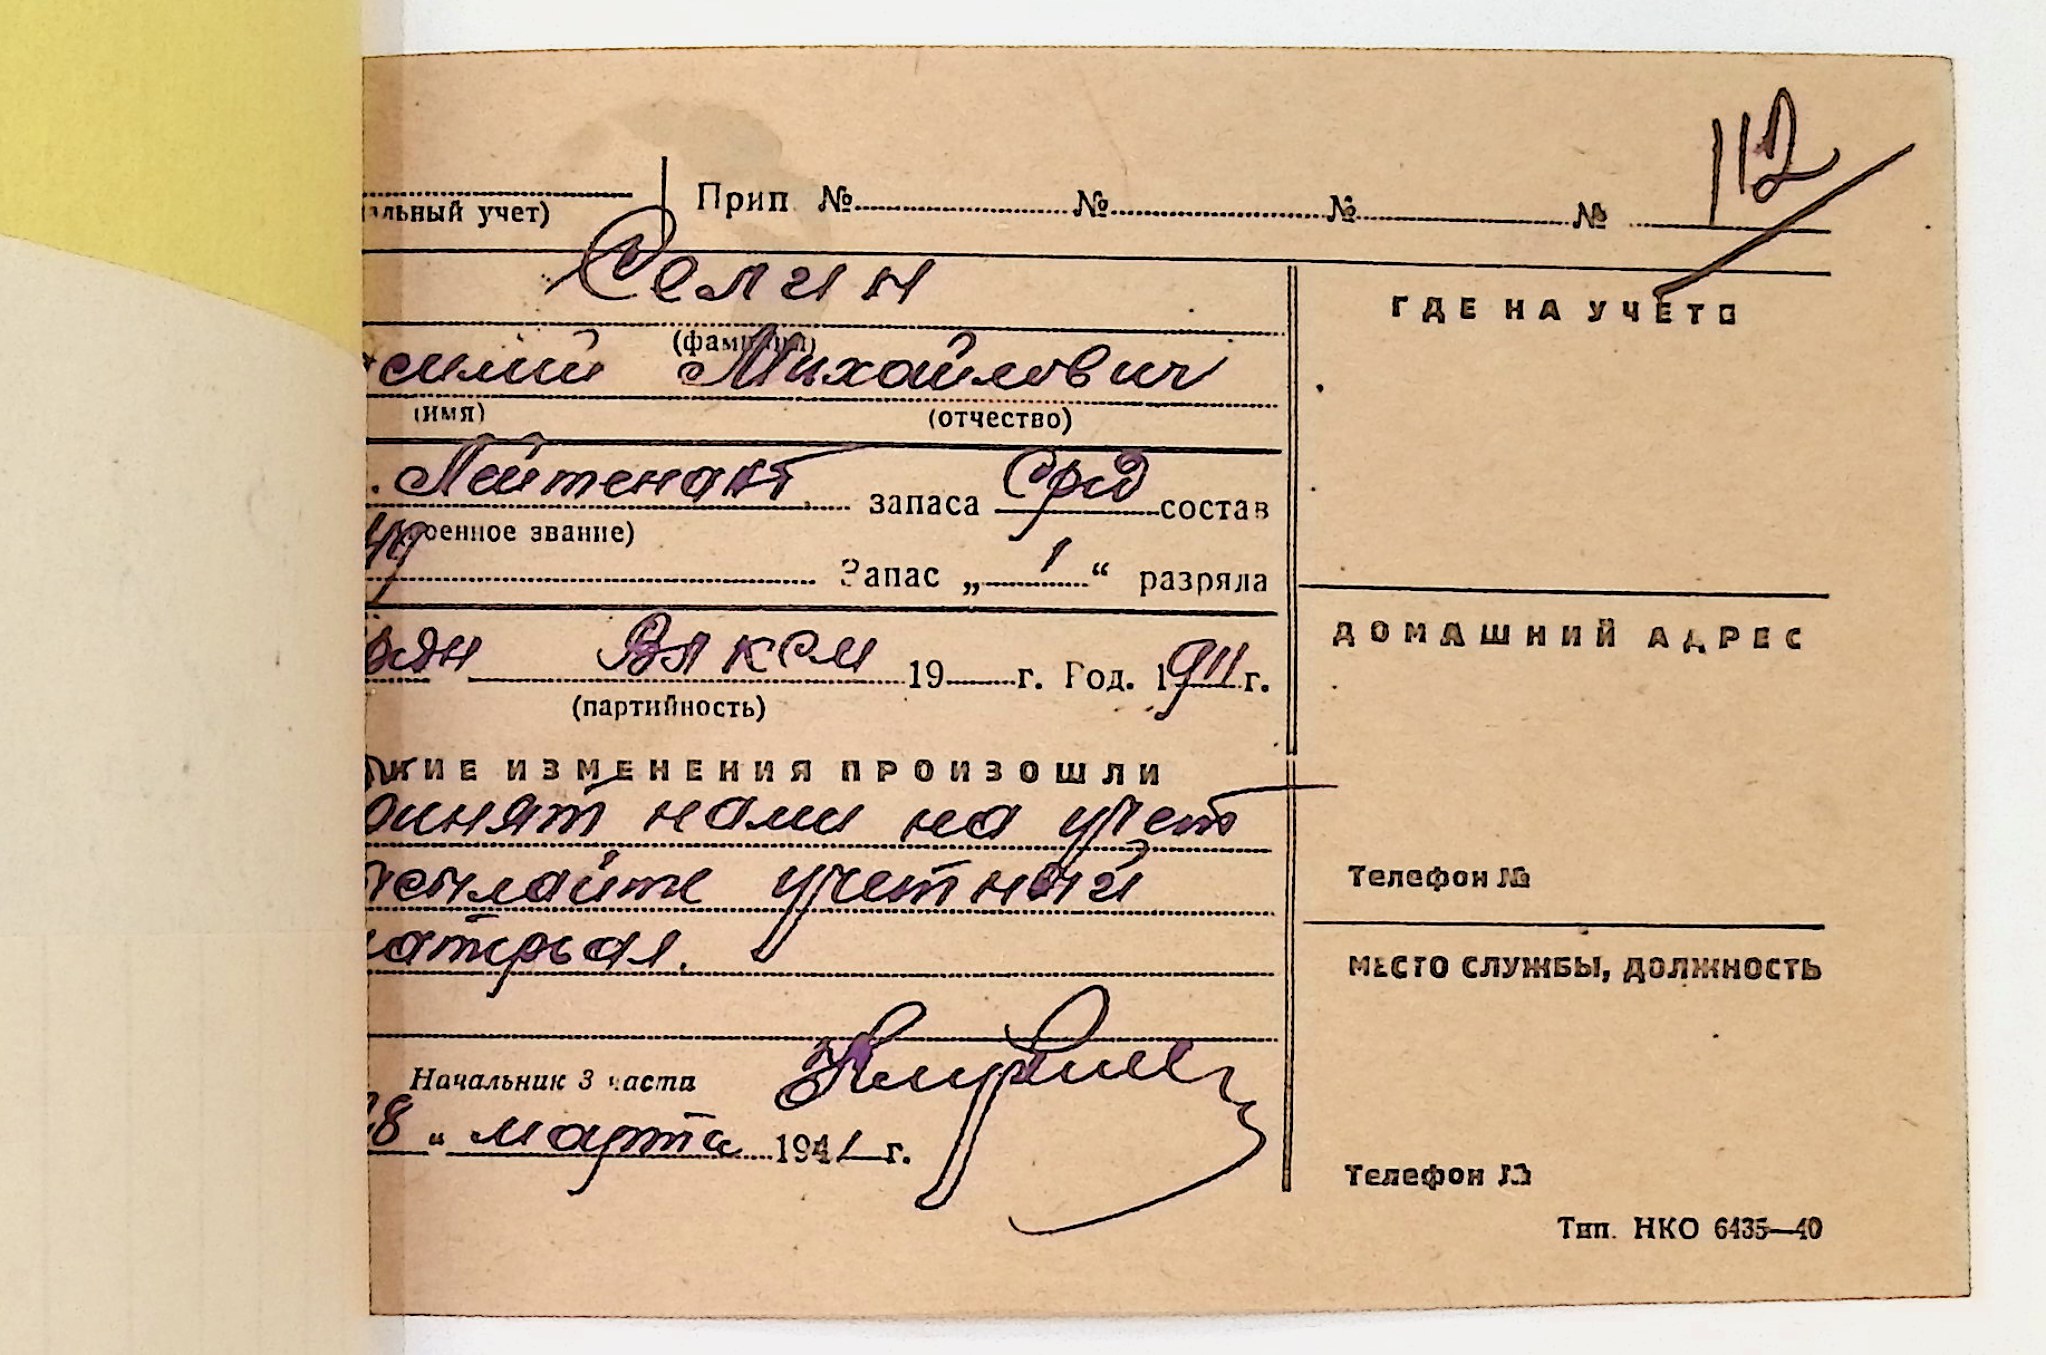 112
Прип № № № №
альный учет)
Селин
(фамилия)
ГДЕ НА УЧЕТЕ
силий Михайлович
(имя) (отчество)
Лейтенант запаса Сред состав
оенное звание)
Запас „1“ разряда
ДОМАШНИЙ АДРЕС
Влксм 19 г. Год. 1911 г.
(партийность)
КИЕ ИЗМЕНЕНИЯ ПРОИЗОШЛИ
ринят нами на учет
сылайте учетный
Телефон №
атерьял.
МЕСТО СЛУЖБЫ, ДОЛЖНОСТЬ
Начальник 3 части
28 „ марта 1941 г.
Телефон №
Тип. НКО 6435—40